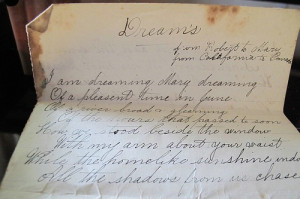 Dreams
of wm Robert to Mary
from California to
I am dreaming Mary dreaming
Of a pleasent time in June
Of the years that passed to soon
How we stood beside the window
With my arm about your waist
While the homelike sunshine
all the shadows from us chase